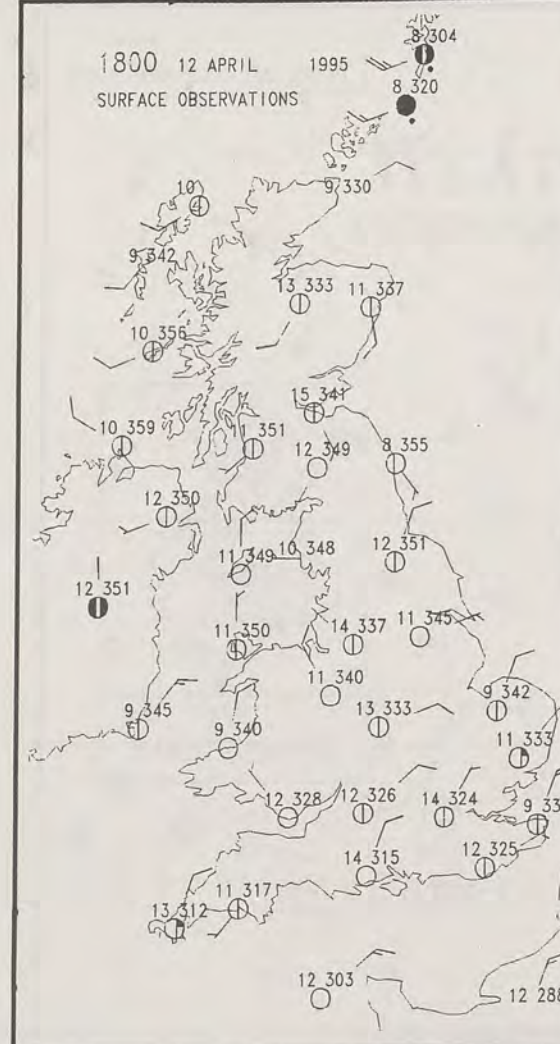 8 304
1800 12 APRIL 1995
SURFACE OBSERVATIONS
8 320
10
9 330
9 342
13 333
11 337
10 356
15 341
10 359
351
12 349
8 355
12 350
11 349
10 348
12 351
12 351
11 350
14 337
11 345
11 340
9 342
9 345
9 340
13 333
11 333
12 328
12 326
14 324
14 315
12 325
11 317
13 312
12 303
12 288